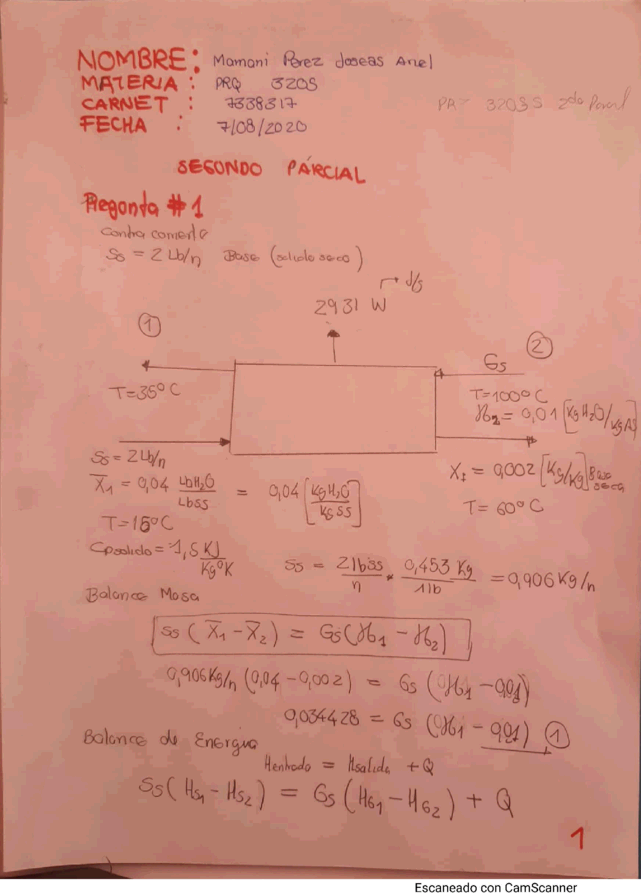 NOMBRE: Mamani Perez Joseas Ariel
MATERIA : PRQ 3203
CARNET : 7338317
FECHA : 7/08/2020
SEGUNDO PÁRCIAL
Pregonta #1
Contra corriente
Ss = 2 Lb/n Base (solido seco)
J/s
2931 W
① ②
Gs
T=35°C
T=100°C
ℋ₂ = 0,01 [KgH₂O/KgAS]
Ss = 2Lb/n
X̅₁ = 0,04 LbH₂O/Lbss = 0,04 [KgH₂O/KgSS]
X₂ = 0,002 [Kg/Kg] Base seca
T=15°C
T= 60°C
Cpsolido = 1,5 KJ/Kg°K
Ss = 2lbss/n * 0,453 Kg/1lb = 0,906Kg/n
Balance Masa
Ss (X̅₁ - X̅₂) = Gs(ℋ₁ - ℋ₂)
0,906Kg/n (0,04 - 0,002) = Gs (ℋ₁ - 0,01)
0,034428 = Gs (ℋ₁ - 0,01) ①
Balance de Energia
Hentrado = Hsalida + Q
Ss(Hs₁ - Hs₂) = Gs (HG₁ - HG₂) + Q
1
Escaneado con CamScanner